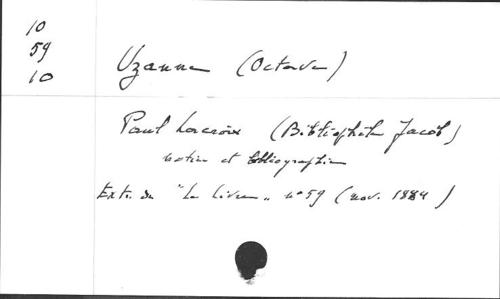 10
59
10
Uzanne (Octave)
Paul Lacroix (Bibliophile Jacob)
notice et bibliographie
Extr. du "Le Livre" n° 59 (nov. 1884)